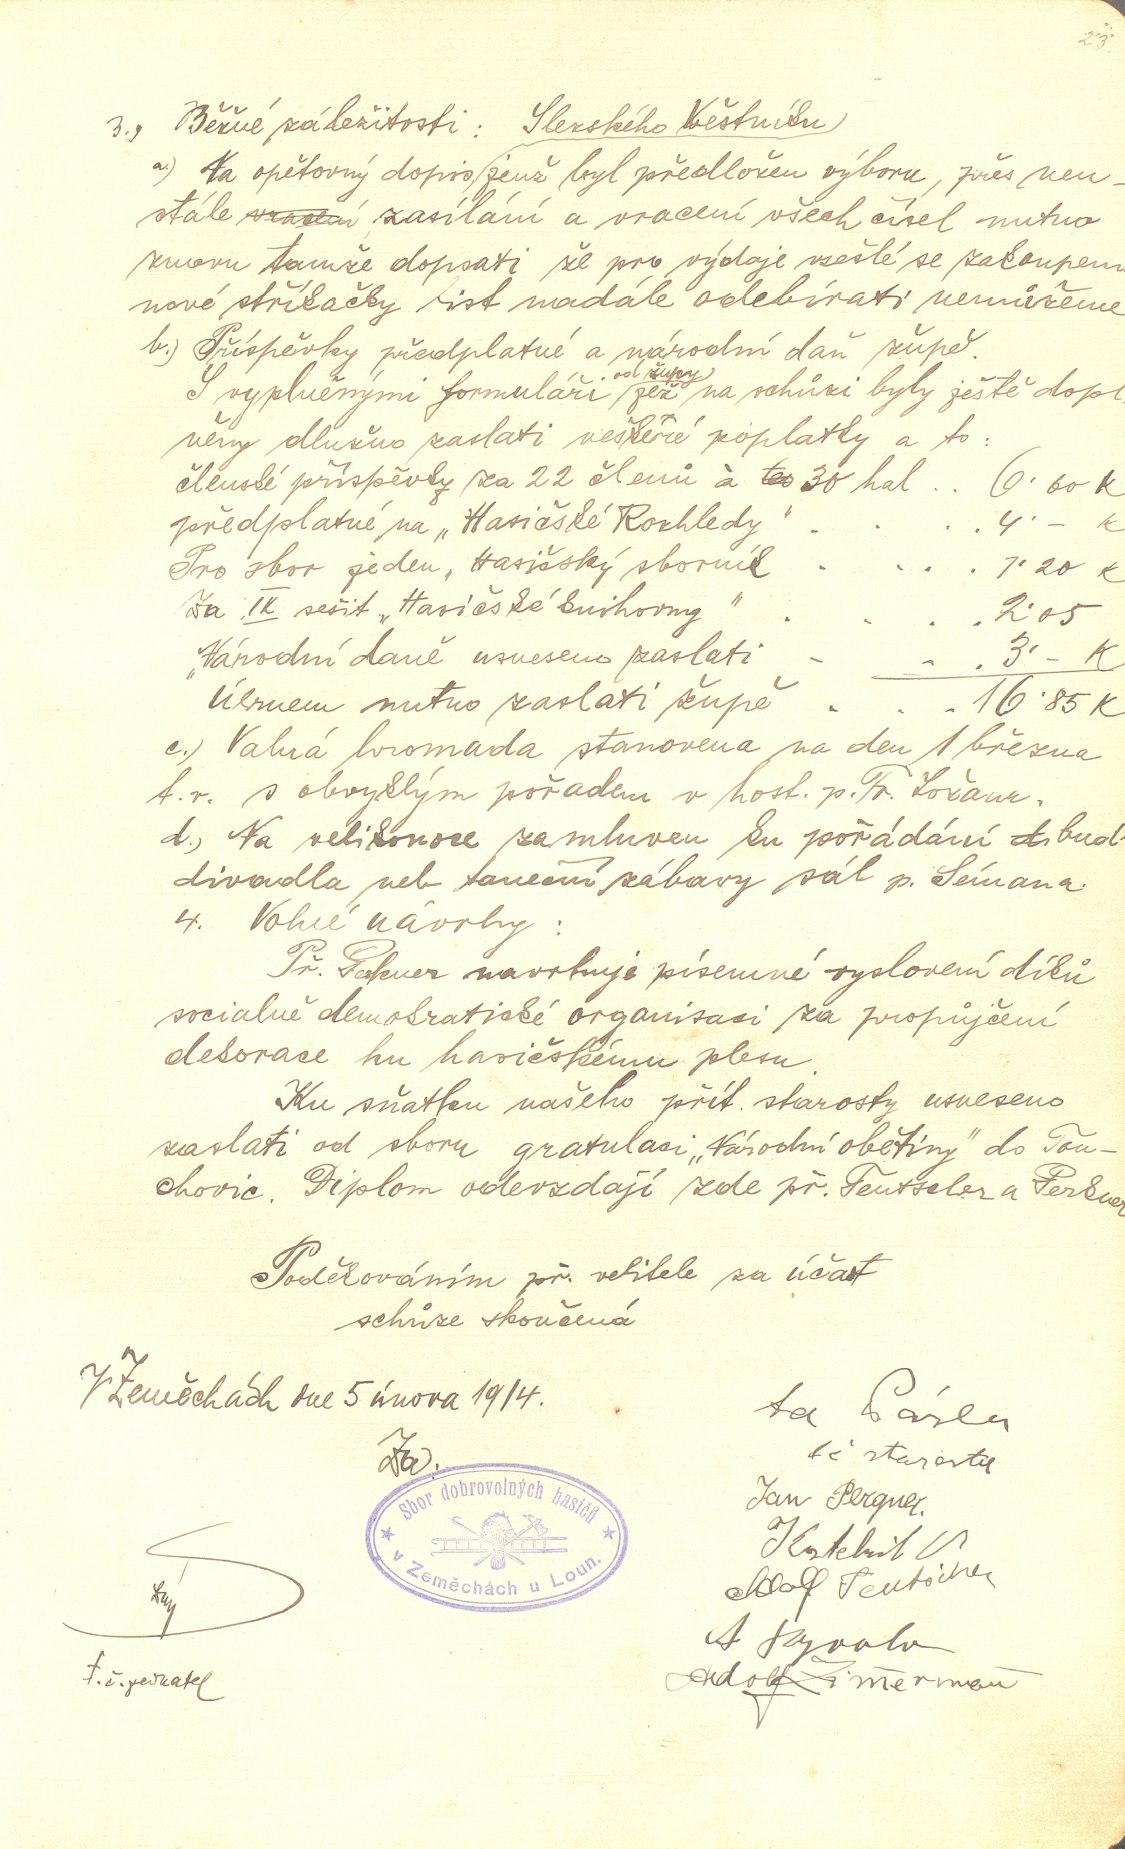 23.
3., Běžné záležitosti: Slezského Věstníku
a.) Na opětovný dopis jenž byl předložen výboru, přes neu-
stále vracení zasílání a vracení všech čísel nutno
znovu tamže dopsati že pro výdaje vzešlé se zakoupením
nové stříkačky list nadále odebírati nemůžeme
b.) Příspěvky předplatné a národní daň župě.
od župy
S vyplněnými formuláři jež na schůzi byly ještě dopl-
něny dlužno zaslati veškeré poplatky a to:
členské příspěvky za 22 členů à 30 hal .. 6·60 K
předplatné na „Hasičské Rozhledy" . . . . 4·– K
Pro sbor jeden „Hasičský sborník . . . . 1·20 K
Za IX sešit „Hasičské knihovny" . . . . 2·05
„Národní daně usneseno zaslati - - . 3·– K
Úhrnem nutno zaslati župě . . . 16·85 K
c.) Valná hromada stanovena na den 1 března
t.r. s obvyklým pořadem v host. p. Fr. Ložanr.
d., Na velikonoce zamluven ku pořádání buď
divadla neb taneční zábavy sál p. Sémana.
4. Volné návrhy:
Př. navrhuje písemné vyslovení díků
socialně demokratické organisaci za propůjčení
dekorace ku hasičskému plesu.
Ku sňatku našeho přít. starosty usneseno
zaslati od sboru gratulaci „Národní obětiny" do Tou-
chovic. Diplom odevzdají zde př. Teutscher a Perkner
Poděkováním př. velitele za účast
schůze skončená
V Zeměchách dne 5 února 1914.
Za:
Sbor dobrovolných hasičů
v Zeměchách u Loun.
t č starosta
Jan Pergner.
Adolf Teutscher
Adolf Zimermann
t. č. jednatel